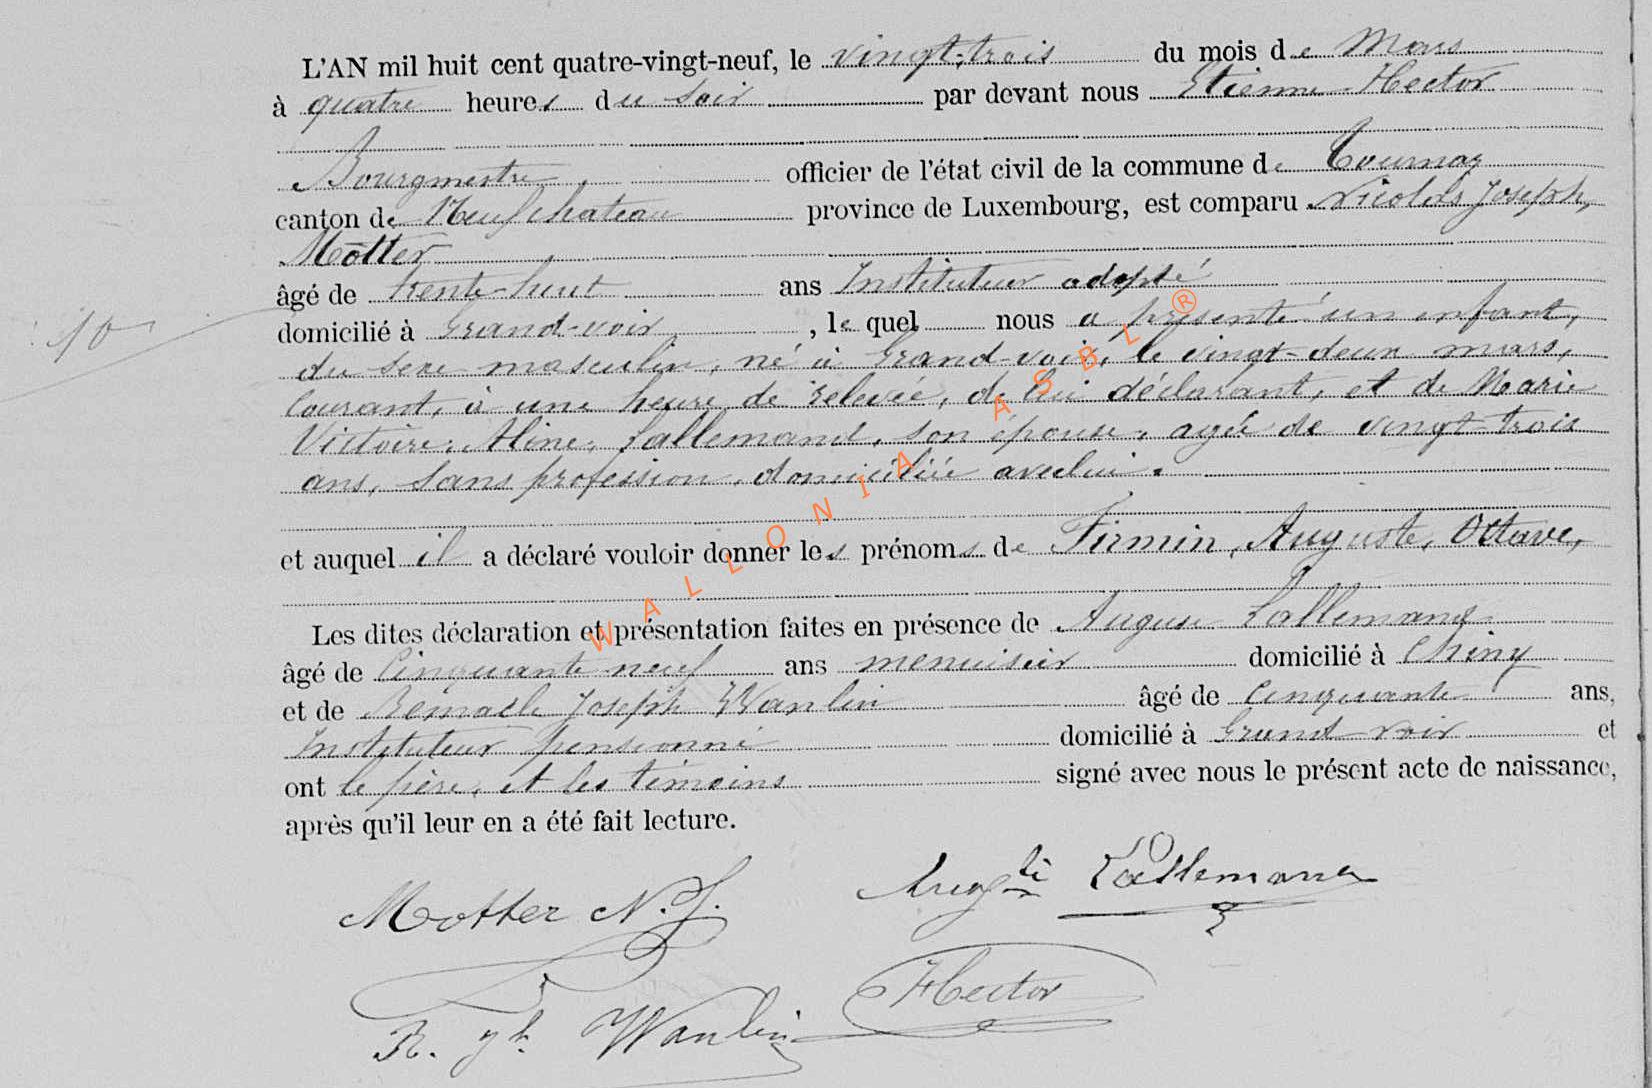 L'AN mil huit cent quatre-vingt-neuf, le vingt-trois du mois de Mars
à quatre heures du soir par devant nous Etienne Hector
Bourgmestre officier de l'état civil de la commune de Tournay
canton de Neufchateau province de Luxembourg, est comparu Nicolas Joseph,
Motter
âgé de trente-huit ans Instituteur adopté
domicilié à Grand-voir, le quel nous a présenté un enfant,
du sexe masculin, né à Grand-voir, le vingt-deux mars,
courant, à une heure de relevée, de lui déclarant, et de Marie
Victoire, Aline, Lallemand, son épouse, agée de vingt trois
ans, sans profession, domiciliée avec lui.
et auquel il a déclaré vouloir donner les prénoms de Firmin, Auguste, Octave,
Les dites déclaration et présentation faites en présence de Auguste Lallemand
âgé de cinquante neuf ans menuisier domicilié à Chiny
et de Remacle Joseph Wanlin âgé de cinquante ans,
Instituteur pensionné domicilié à Grand voir et
ont le père, et les témoins signé avec nous le présent acte de naissance,
après qu'il leur en a été fait lecture.
10
Motter N.J. Augte Lallemand
Hector
R. Jh. Wanlin
WALLONIA ASBL ®